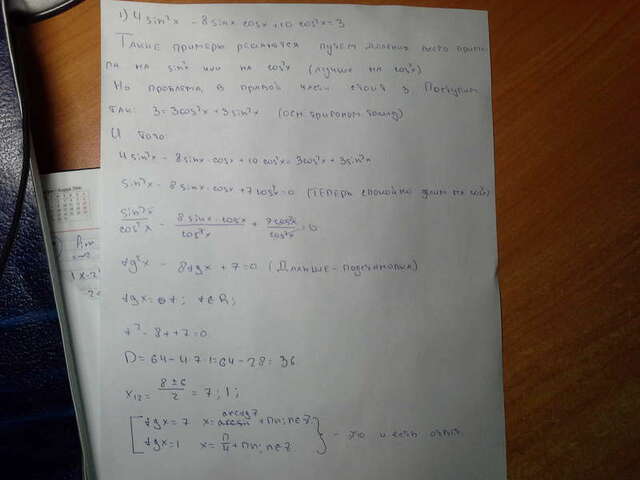 1) 4 sin²x - 8 sinx cosx + 10 cos²x = 3
Такие примеры решаются путем деления всего приме-
ра на sin²x или на cos²x (лучше на cos²x)
Но проблема, в правой части стоит 3. Поступим
так: 3 = 3cos²x + 3sin²x (осн. тригоном. тожд)
Итого:
4 sin²x - 8 sinx · cosx + 10 cos²x = 3cos²x + 3sin²x
sin²x - 8 sinx cosx + 7 cos²x = 0 (теперь спокойно делим на cos²x)
sin²x/cos²x - 8 sinx · cosx/cos²x + 7 cos²x/cos²x = 0
tg²x - 8tgx + 7 = 0 (Дальше - подстановка)
tgx = t; t ∈ R;
t² - 8t + 7 = 0
D = 64 - 4·7·1 = 64 - 28 = 36
x₁₂ = 8 ± 6/2 = 7; 1;
tgx = 7 x = arctg7 + Пn; n ∈ Z
tgx = 1 x = П/4 + Пn; n ∈ Z
- это и есть ответ.